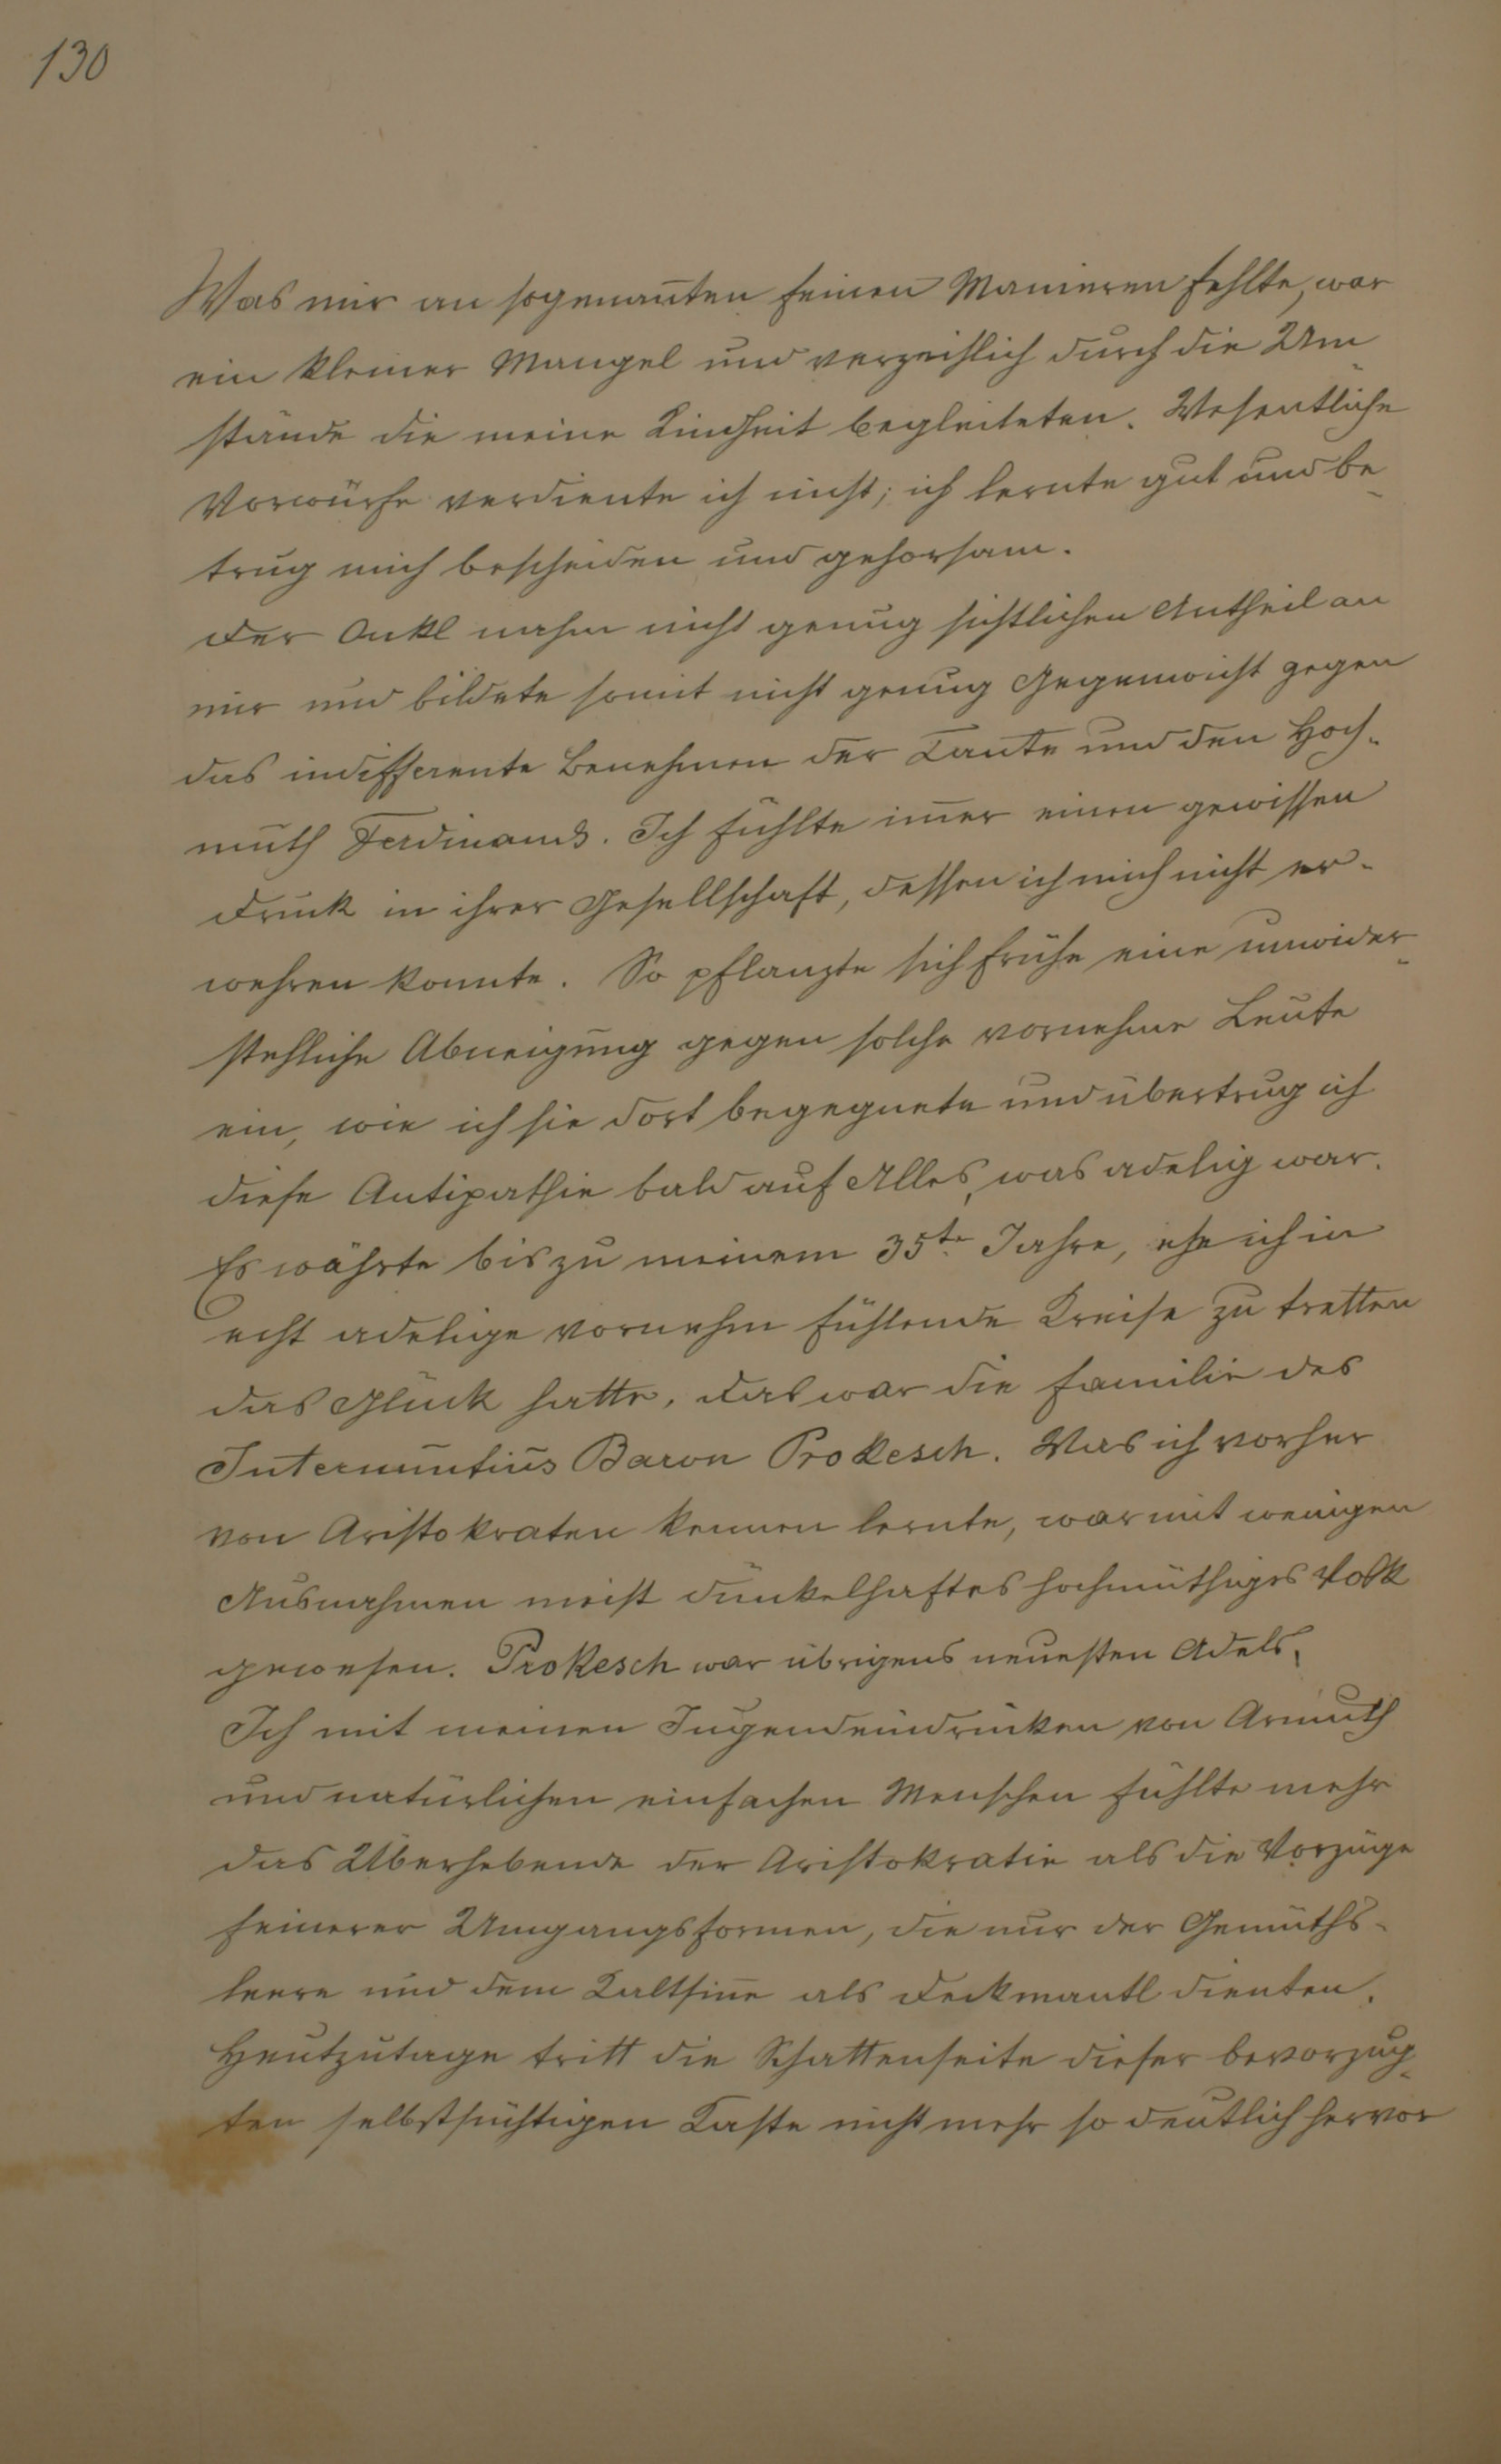 130
Was mir an sogenan̄ten feinen Manieren fehlte, war
ein kleiner Mangel und verzeihlich durch die Um
stände die meine Kindheit begleiteten. Wesentliche
Vorwürfe verdiente ich nicht; ich lernte gut und be
trug mich bescheiden und gehorsam.
Der Onkl nahm nicht genug sichtlichen Antheil an
mir und bildete somit nicht genug Gegenwicht gegen
das indifferente Benehmen der Tante und den Hoch-
muth Ferdinands. Ich fühlte im̄er einen gewissen
Druck in ihrer Gesellschaft, dessen ich mich nicht er-
wehren konnte. So pflanzte sich frühe eine unwider-
stehliche Abneigung gegen solche vornehme Leute
ein, wie ich sie dort begegnete und übertrug ich
diese Antipathie bald auf Alles, was adelig war.
Es währte bis zu meinem 35te Jahre, ehe ich in
echt adelige vornehm fühlende Kreise zu tretten
das Glück hatte. Das war die Familie des
Internuntius Baron Prokesch. Was ich vorher
von Aristokraten kennen lernte, war mit wenigen
Ausnahmen meist dünkelhaftes hochmüthiges Volk
gewesen. Prokesch war übrigens neuesten Adels.
Ich mit meinen Jugendeindrücken von Armuth
und natürlichen einfachen Menschen fühlte mehr
das Überhebende der Aristokratie als die Vorzüge
feinerer Umgangsformen, die nur der Gemüths-
leere und dem Kaltsin̄e als Deckmantl dienten.
Heutzutage tritt die Schattenseite dieser bevorzug-
ten selbstsüchtigen Kaste nicht mehr so deutlich hervor